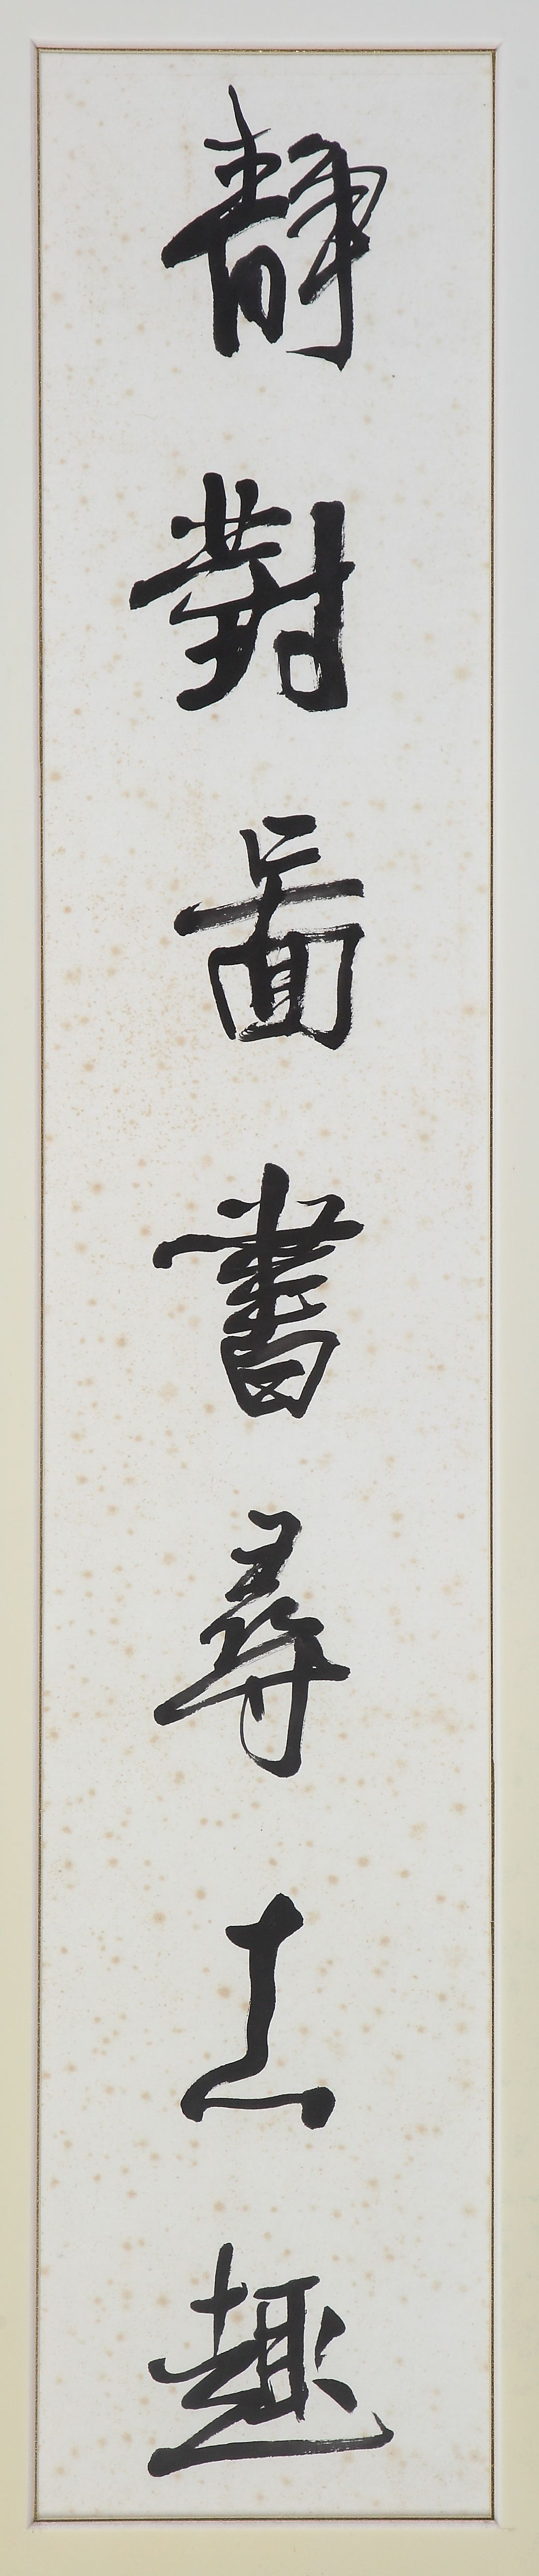 靜對圖書尋真趣